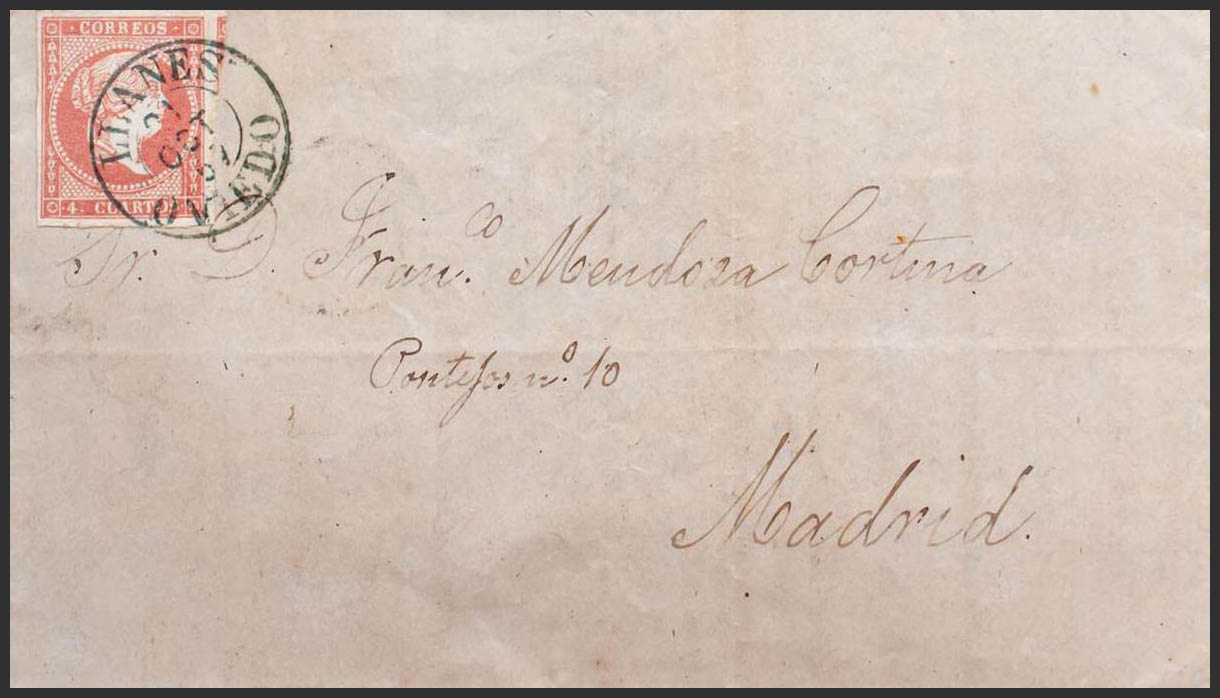 CORREOS
LLANES
OCT
OVIEDO
4. CUARTOS
Sr. D. Fran.co Mendoza Cortina
Pontejos nº. 10
Madrid.